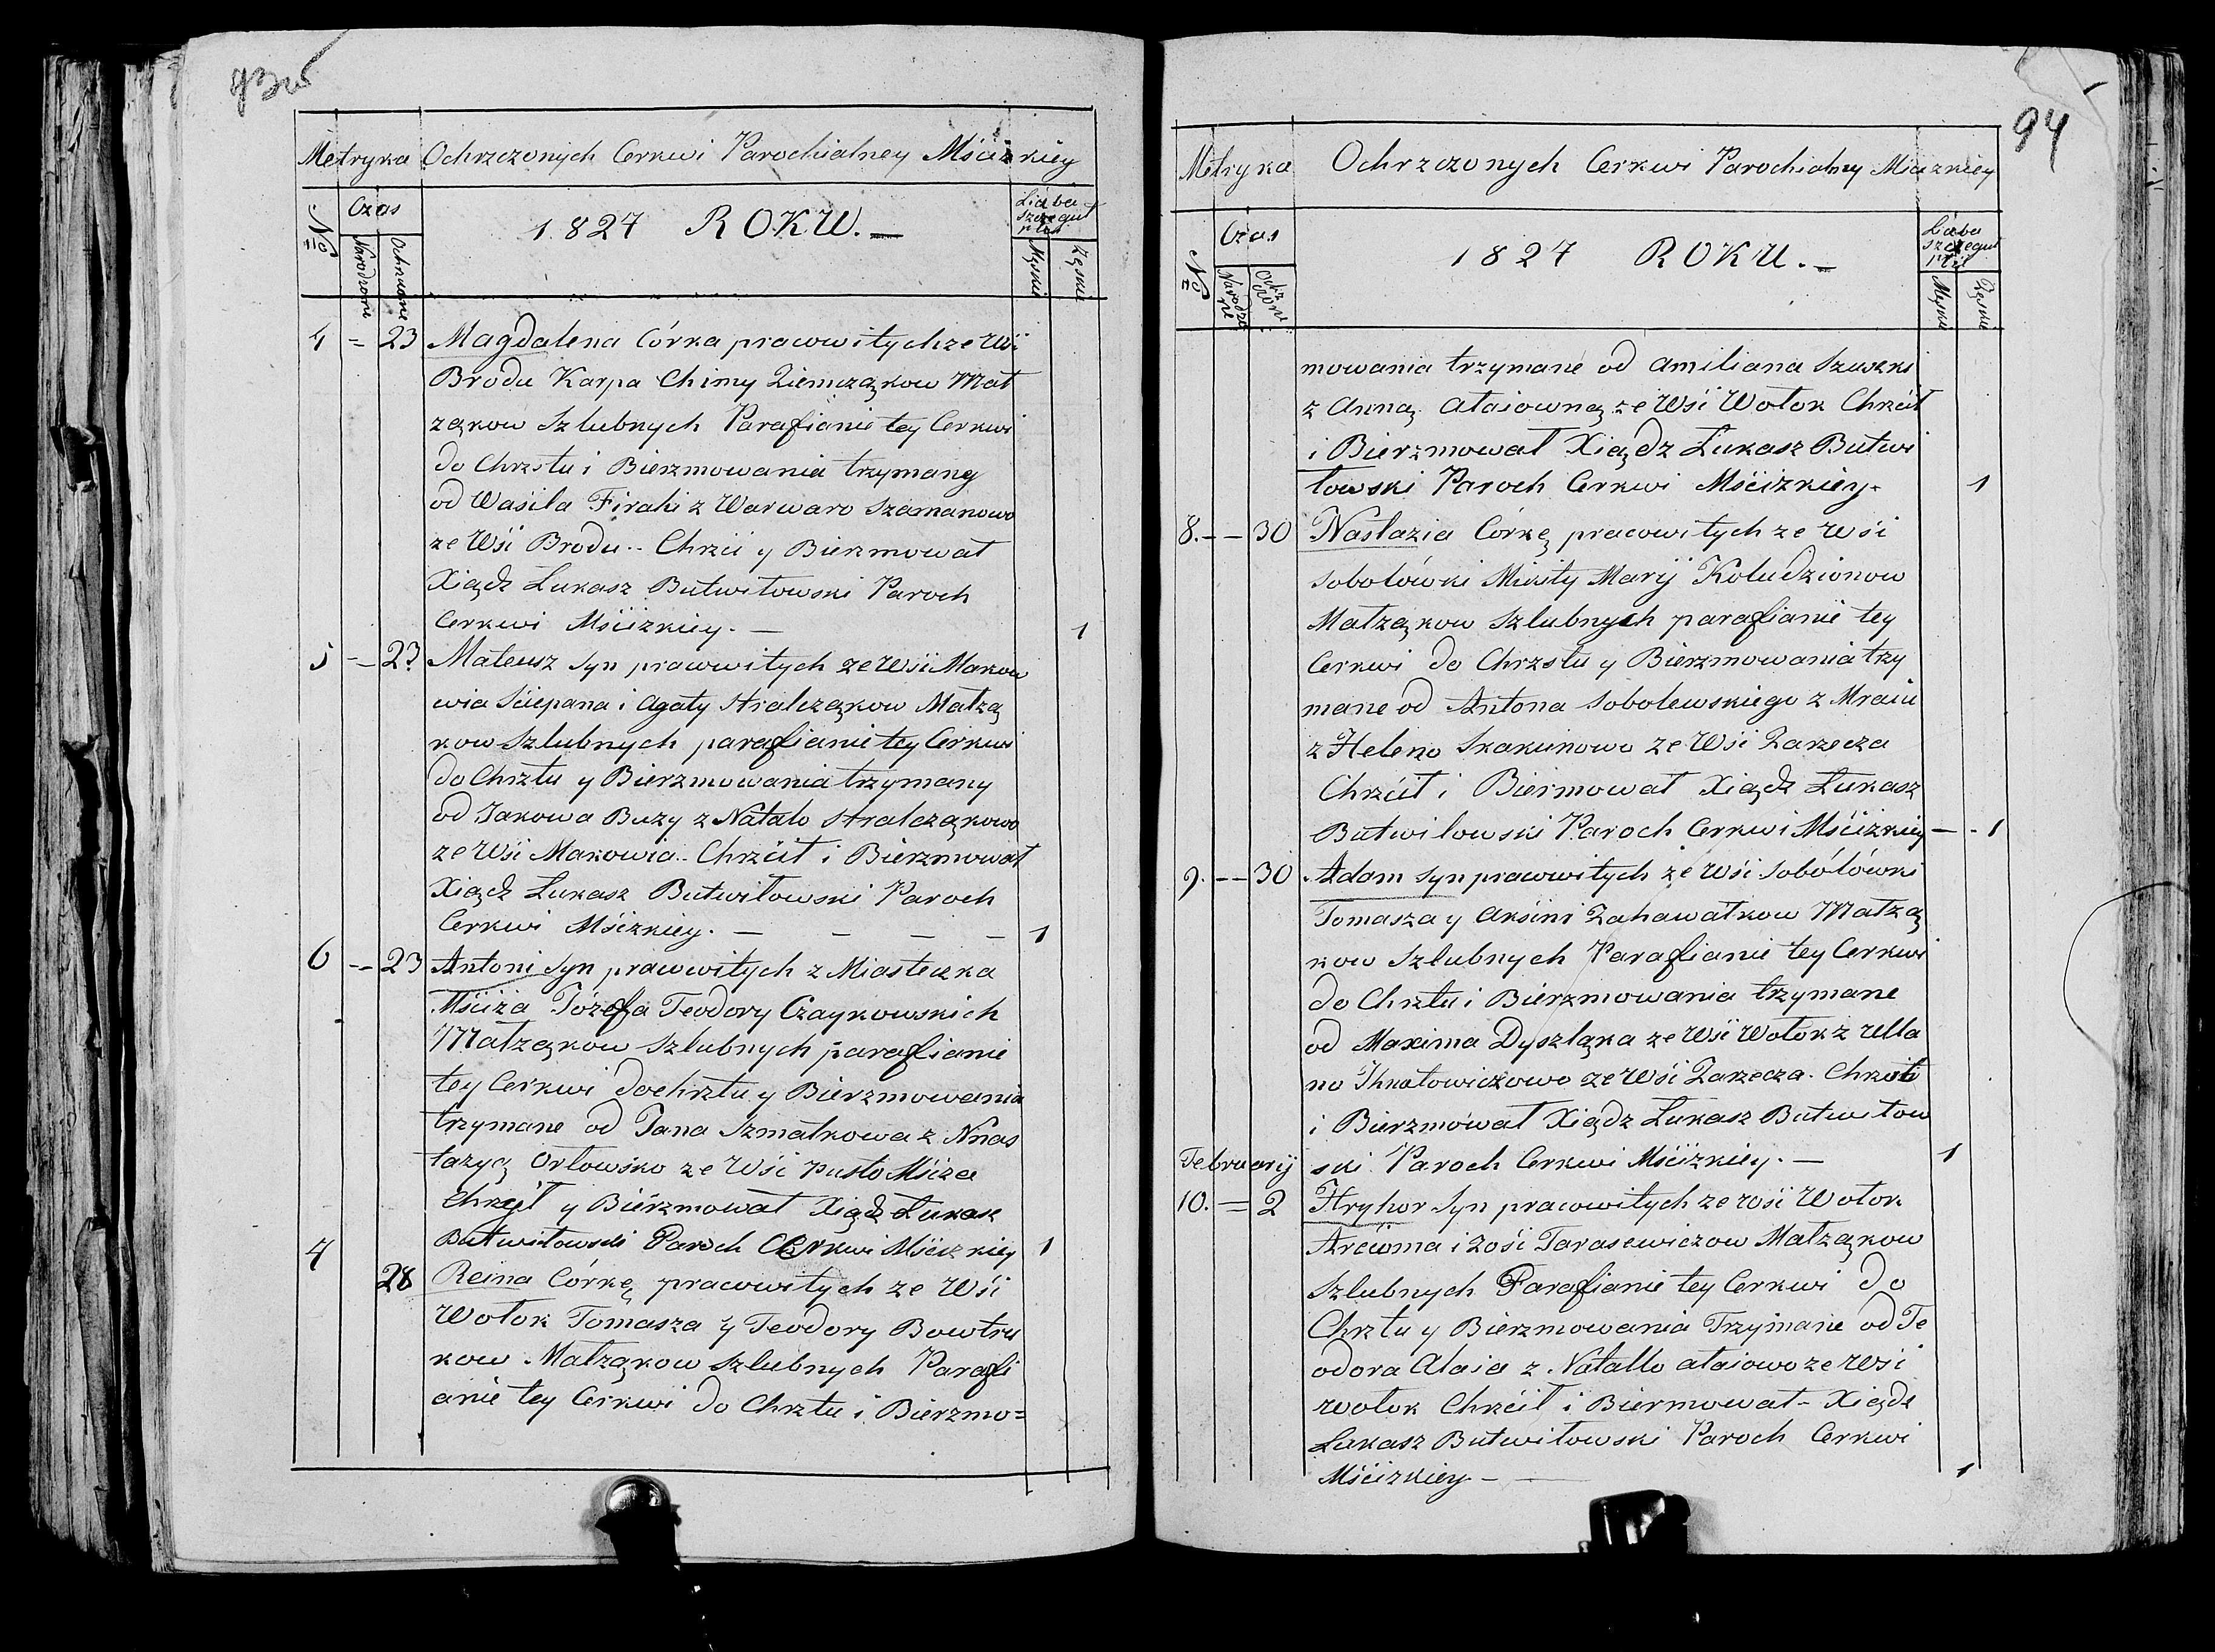 93 об
Metryka Ochrzczonych Cerkwi Parochialney Mściżkiey
No
Czas
Narodzenia
Ochrzczenia
1827 ROKU.—
Liczba szczegul płci
Męskiej
Żęskiej
4 = 23 Magdalena Córka pracowitych ze Wśi
Brodu Karpa Chimy Ziemcząkow Mał
żąkow Szlubnych Parafianie tey Cerkwi
do Chrzstu i Bierzmowania trzymaney
od Waśila Firahi z Warwaro Szamanowo
ze Wśi Brodu.. Chrzći y Bierzmował
Xiądz Łukasz Butwiłowski Paroch
Cerkwi Mściżkiey. — 1
5 – – 23 Mateusz Syn pracowitych ze Wśi Makow
wia Sciepana i Agaty Stralcząkow Małżą
kow Szlubnych parafianie tey Cerkwi
do Chrztu y Bierzmowania trzymany
od Jakowa Buzy z Natalo Stralcząkowo
ze Wśi Makowia.. Chrźćił i Bierzmował
Xiądz Łukasz Butwiłowski Paroch
Cerkwi Mściżkiey. — – – – 1
6 – – 23 Antoni Syn pracowitych z Miasteczka
Mściża Józefa Teodory Czaykowskich
Małżąkow Szlubnych parafianie
tey Cerkwi dochrztu y Bierzmowania
trzymane od Jana Szmatkowa z Nnas
tazyą Orłowsko ze Wśi pusto Mściża
Chrzćił y Bierzmował Xiądz Łukasz
Butwiłowski Paroch Cerkwi Mściżkiey 1
7 28 Reina Córkę pracowitych ze Wśi
Wołok Tomasza y Teodory Bowtru
kow Małżąkow szlubnych Parafi
anie tey Cerkwi do Chrztu i Bierzmo=
94
Metryka Ochrzczonych Cerkwi Parochialney Mściżkiey
No
Czas
Narodzenie
Ochrzczone
1827 ROKU.—
Liczba szczegul płci
Męskiej
Żęskiej
mowania trzymane od Amiliana Szuszki
z Anną Ataiowną ze Wśi Wołok Chrzćił
i Bierzmował Xiądz Łukasz Butwi
łowski Paroch Cerkwi Mściżkiey. 1
8. – – 30 Nastazia Córkę pracowitych ze Wśi
Sobolówki Mikity Maryi Koludzionow
Małżąkow Szlubnych parafianie tey
Cerkwi do Chrzstu y Bierzmowania trzy
mane od Antona Sobolewskiego z Mraiu
z Heleno Skakunowo ze Wśi Zarzecza
Chrzćił i Biermował Xiądz Łukasz
Butwiłowski Paroch Cerkwi Mściżkiey — - 1
9. – – 30 Adam Syn pracowitych ze Wśi Sobolówki
Tomasza y Akśini Zahawałkow Małżą
kow Szlubnych Parafianie tey Cerkwi
do Chrztu i Bierzmowania trzymane
od Maxima Dyszląka ze Wśi Wołok z Ulla
no Ihnatowiczowo ze Wśi Zarzecza. Chrzćił
i Bierzmował Xiądz Łukasz Butwiłow
Februarij ski Paroch Cerkwi Mściżkiey. — 1
10. = 2 Hryhor Syn pracowitych ze Wśi Wołok
Arćioma i Zośi Tarasewiczow Małżąkow
Szlubnych Parafianie tey Cerkwi do
Chrztu y Bierzmowania Trzymane od Te
odora Ataia z Natallo ataiowo ze Wśi
Wołok Chrzćił i Biermował – Xiądz
Łukasz Butwiłowski Paroch Cerkwi
Mściżkiey — 1